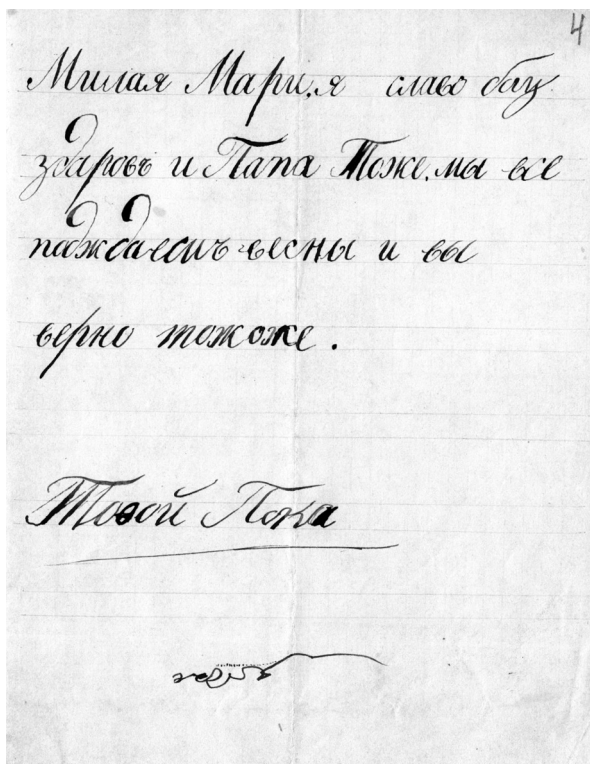 4
Милая Мари, я славо богу
здаровъ и Папа Тоже, мы все
падждаемъ весны и вы
верно тожоже.
Твой Пока